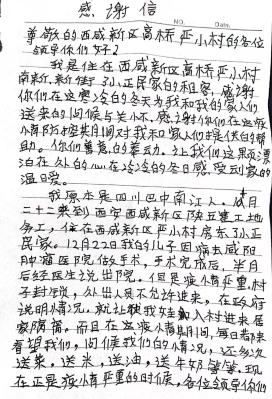 感谢信
NO. Date.
尊敬的西咸新区高桥严小村的各位
领导你们好?
我是住在西咸新区高桥严小村
南新街小正民家的租客,感谢
你们在这寒冷的冬天为我和我的家人们
送来的问候与关心。感谢你们在这疫
情防控期间对我和家人们提供的帮
助。你们善意的举动。让我们这颗漂
泊在外的心在冷冷的冬日感受到家的
温日爱。
我原本是四川巴中南江人。月
二十二来到西安西咸新区陕五建工地
务工,住在西咸新区严小村房东小正
民家。12月22日我的儿子因病去咸阳
肿瘤医院做手术,手术完成后,半月
后经医生说出院。但是疫情严重,村
子封锁,外出人员不允许进来,在政府
说明情况,就让我女转入村进来居
家隔离。而且在这疫情期间,每日都来
看望我们,问候我们的情况,还多次
送菜,送米,送油,送牛奶等等,现
在正是疫情严重的时候,各位领导你们